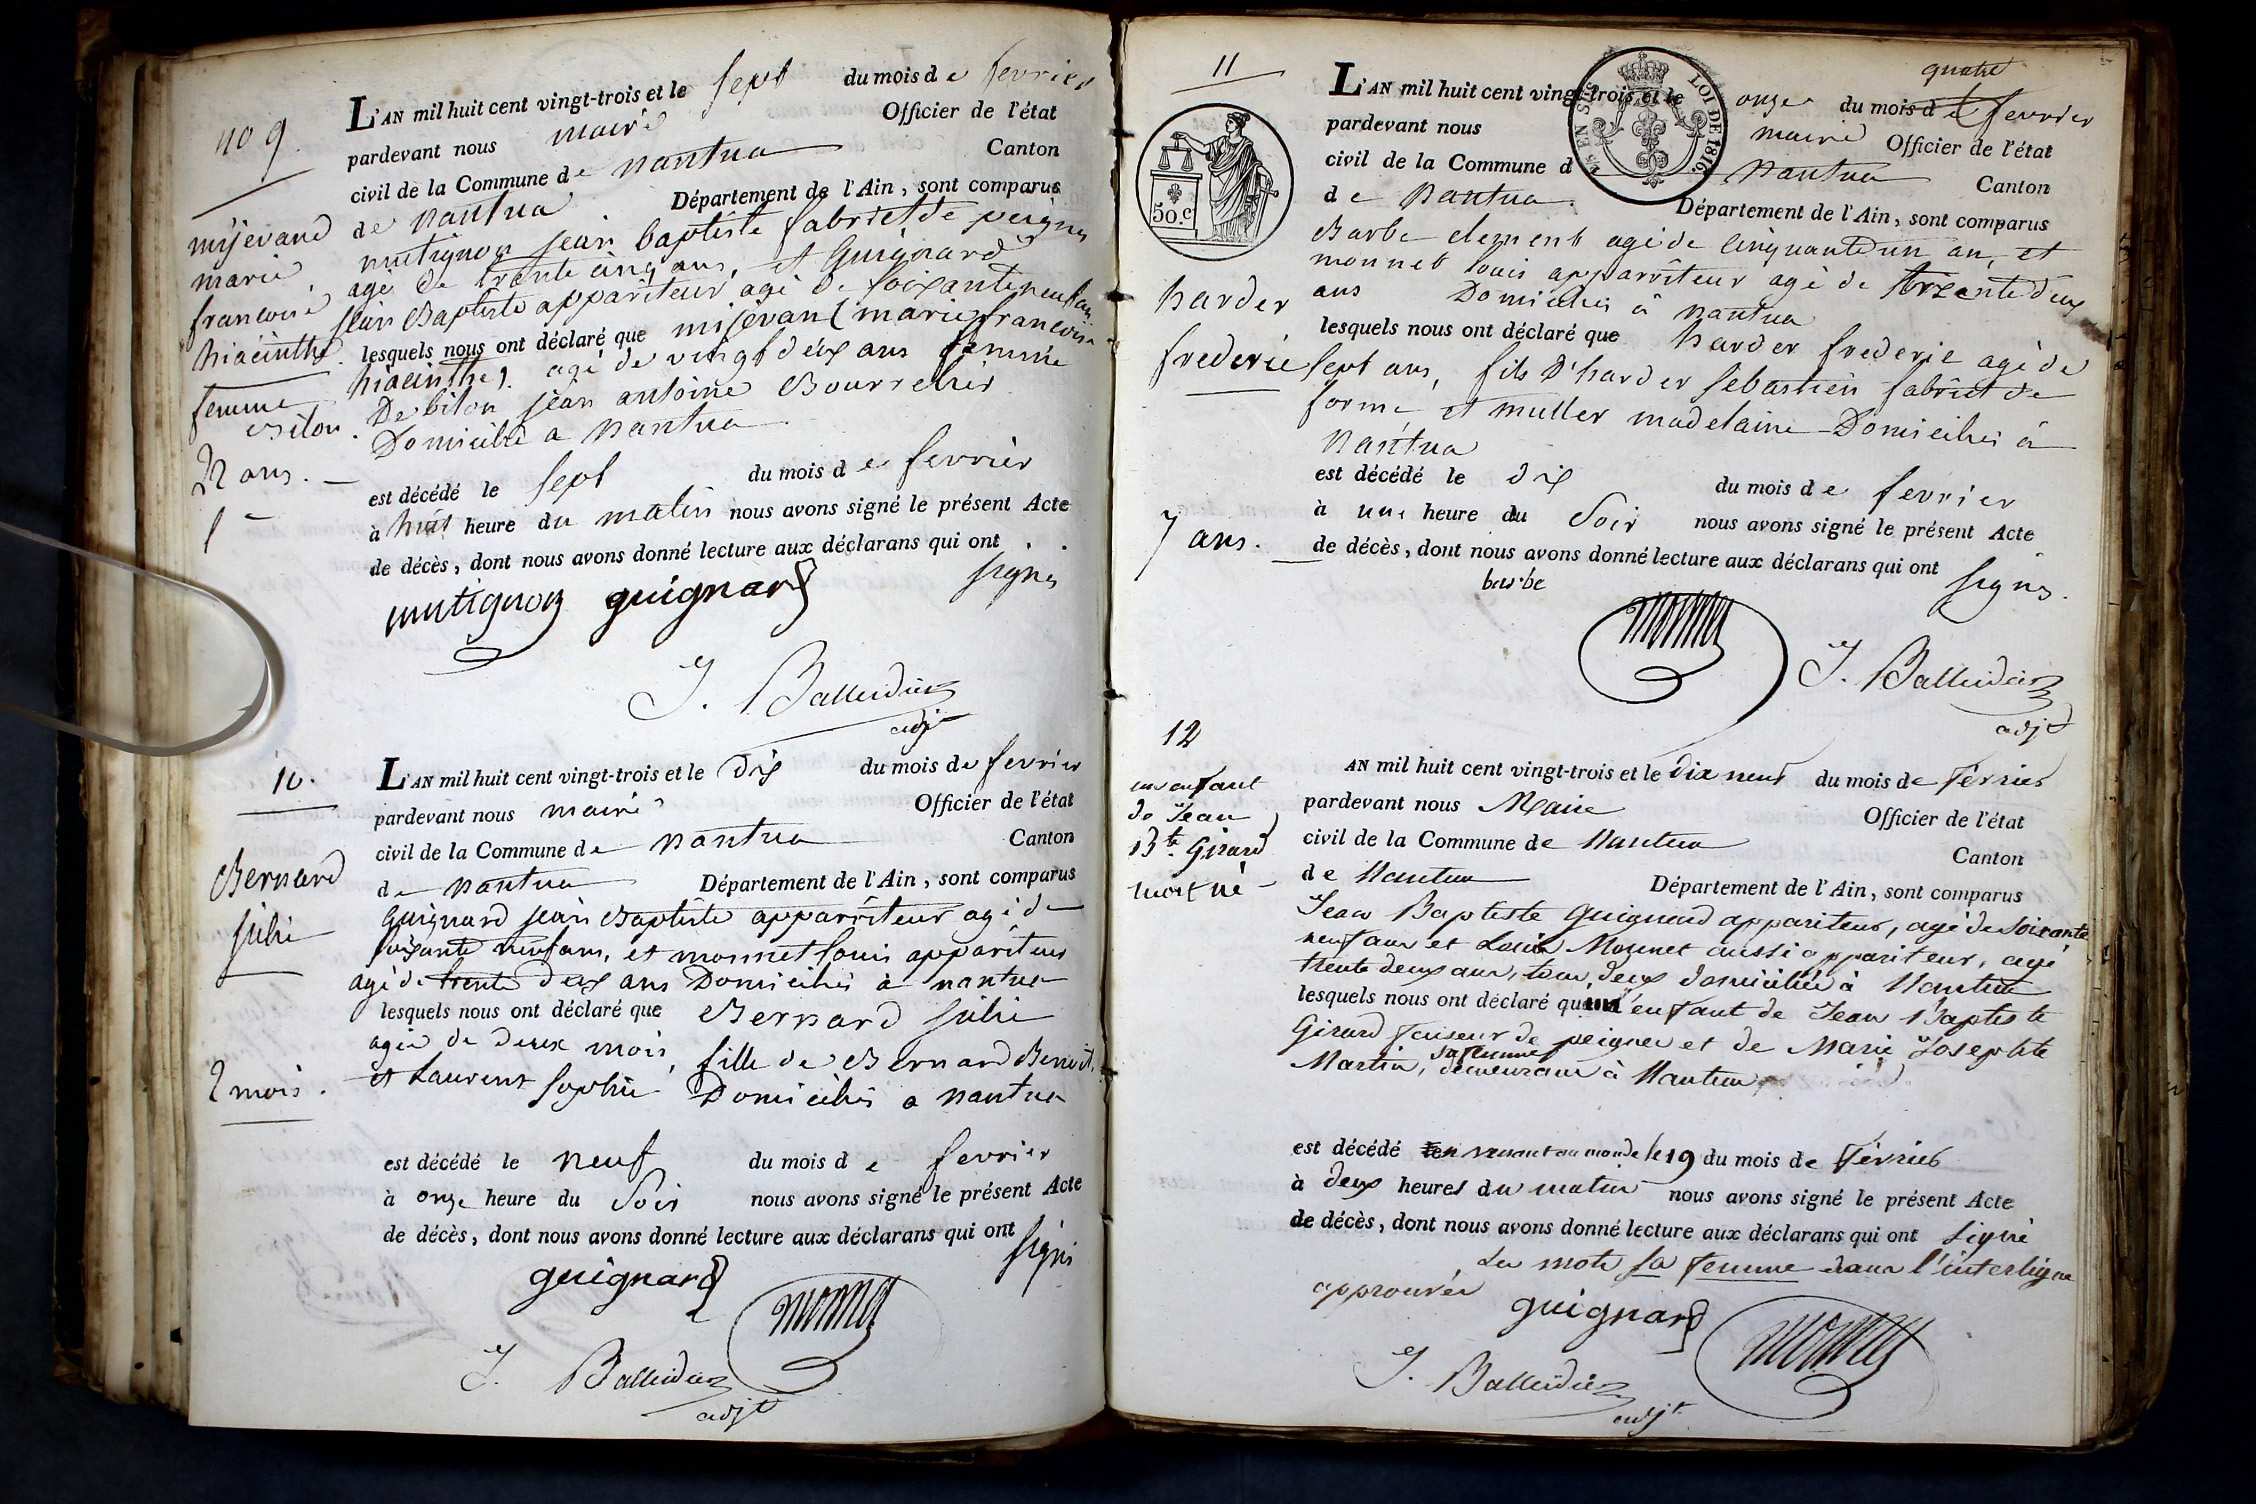 no 9.
mijevand
marie
francoise
hiacinthe.
femme
Bilon.
22 ans.
L'AN mil huit cent vingt-trois et le sept du mois de fevrier
pardevant nous maire Officier de l'état
civil de la Commune de nantua Canton
de nantua Département de l'Ain, sont comparus
mutignon jean baptiste fabrict de peignes
agé de trente cinq ans, et Guignard
jean Baptiste appariteur agé de soixante neuf ans
lesquels nous ont déclaré que mijevan (marie francoise
hiacinthe). agé de vingt deux ans femme
De bilon jean antoine Bourrelier
Domicilié a nantua
est décédé le sept du mois de fevrier
à huit heure du matin nous avons signé le présent Acte
de décès, dont nous avons donné lecture aux déclarans qui ont
signés
mutignon guignard
J. Balleidier
adjt
10.
Bernard
julie
2 mois.
L'AN mil huit cent vingt-trois et le dix du mois de fevrier
pardevant nous maire Officier de l'état
civil de la Commune de nantua Canton
de nantua Département de l'Ain, sont comparus
guignard jean Baptiste apparriteur agé de
soixante neuf ans, et monnet louis appariteur
agé de trente deux ans Domiciliés à nantua
lesquels nous ont déclaré que Bernard julie
agée de deux mois, fille de Bernard Benoit,
et Laurent sophie Domiciliés a nantua
est décédé le neuf du mois de fevrier
à onze heure du soir nous avons signé le présent Acte
de décès, dont nous avons donné lecture aux déclarans qui ont
signé
guignard monnet
J. Balleidier
adjt
11
50.c
harder
frederic
7 ans.
LOI DE 1816
quatre
L'AN mil huit cent vingt-trois et le onze du mois de fevrier
pardevant nous maire Officier de l'état
civil de la Commune d nantua Canton
de nantua. Département de l'Ain, sont comparus
Barbe clement agé de cinquante un an, et
monnet louis apparriteur agé de trente deux
ans Domiciliés à nantua
lesquels nous ont déclaré que harder frederic agé de
sept ans, fils d'harder sebastien fabrict de
forme et muller madelaine Domiciliés à
nantua
est décédé le dix du mois de fevrier
à une heure du soir nous avons signé le présent Acte
de décès, dont nous avons donné lecture aux déclarans qui ont
signés.
barbe monnet
J. Balleidier
adjt
12
un enfant
de Jean
Bte. Girard
mort né
AN mil huit cent vingt-trois et le dix neuf du mois de Février
pardevant nous Maire Officier de l'état
civil de la Commune de Nantua Canton
de Nantua Département de l'Ain, sont comparus
Jean Baptiste Guignard appariteur, agé de soixante
neuf ans et Louis Monnet aussi appariteur, agé
trente deux ans, tous deux domiciliés à Nantua
lesquels nous ont déclaré que un enfant de Jean Baptiste
Girard faiseur de peignes et de Marie Josephte
sa femme
Martin, demeurans à Nantua
est décédé en venant au monde le 19 du mois de Février
à deux heures du matin nous avons signé le présent Acte
de décès, dont nous avons donné lecture aux déclarans qui ont signé
Les mots sa femme dans l'interligne
approuvés
guignard monnet
J. Balleidier
adjt.